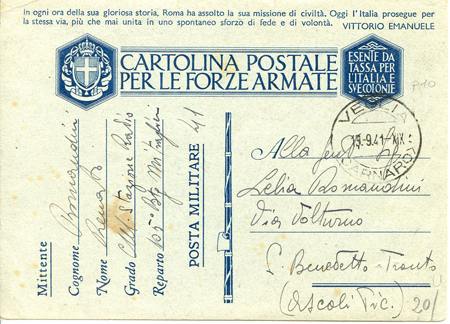 in ogni ora della sua gloriosa storia, Roma ha assolto la sua missione di civiltà. Oggi l'Italia prosegue per
la stessa via, più che mai unita in uno spontaneo sforzo di fede e di volontà. VITTORIO EMANUELE
CARTOLINA POSTALE
PER LE FORZE ARMATE
ESENTE DA
TASSA PER
L'ITALIA E
SUE COLONIE
13.9.41 XIX
Mittente
Cognome Romandini
Nome Renato
Grado Stazione Radio
Reparto 105°
POSTA MILITARE 41
Alla
Lelia Romandini
Via Volturno
S. Benedetto Tronto
(Ascoli Pic.) 201